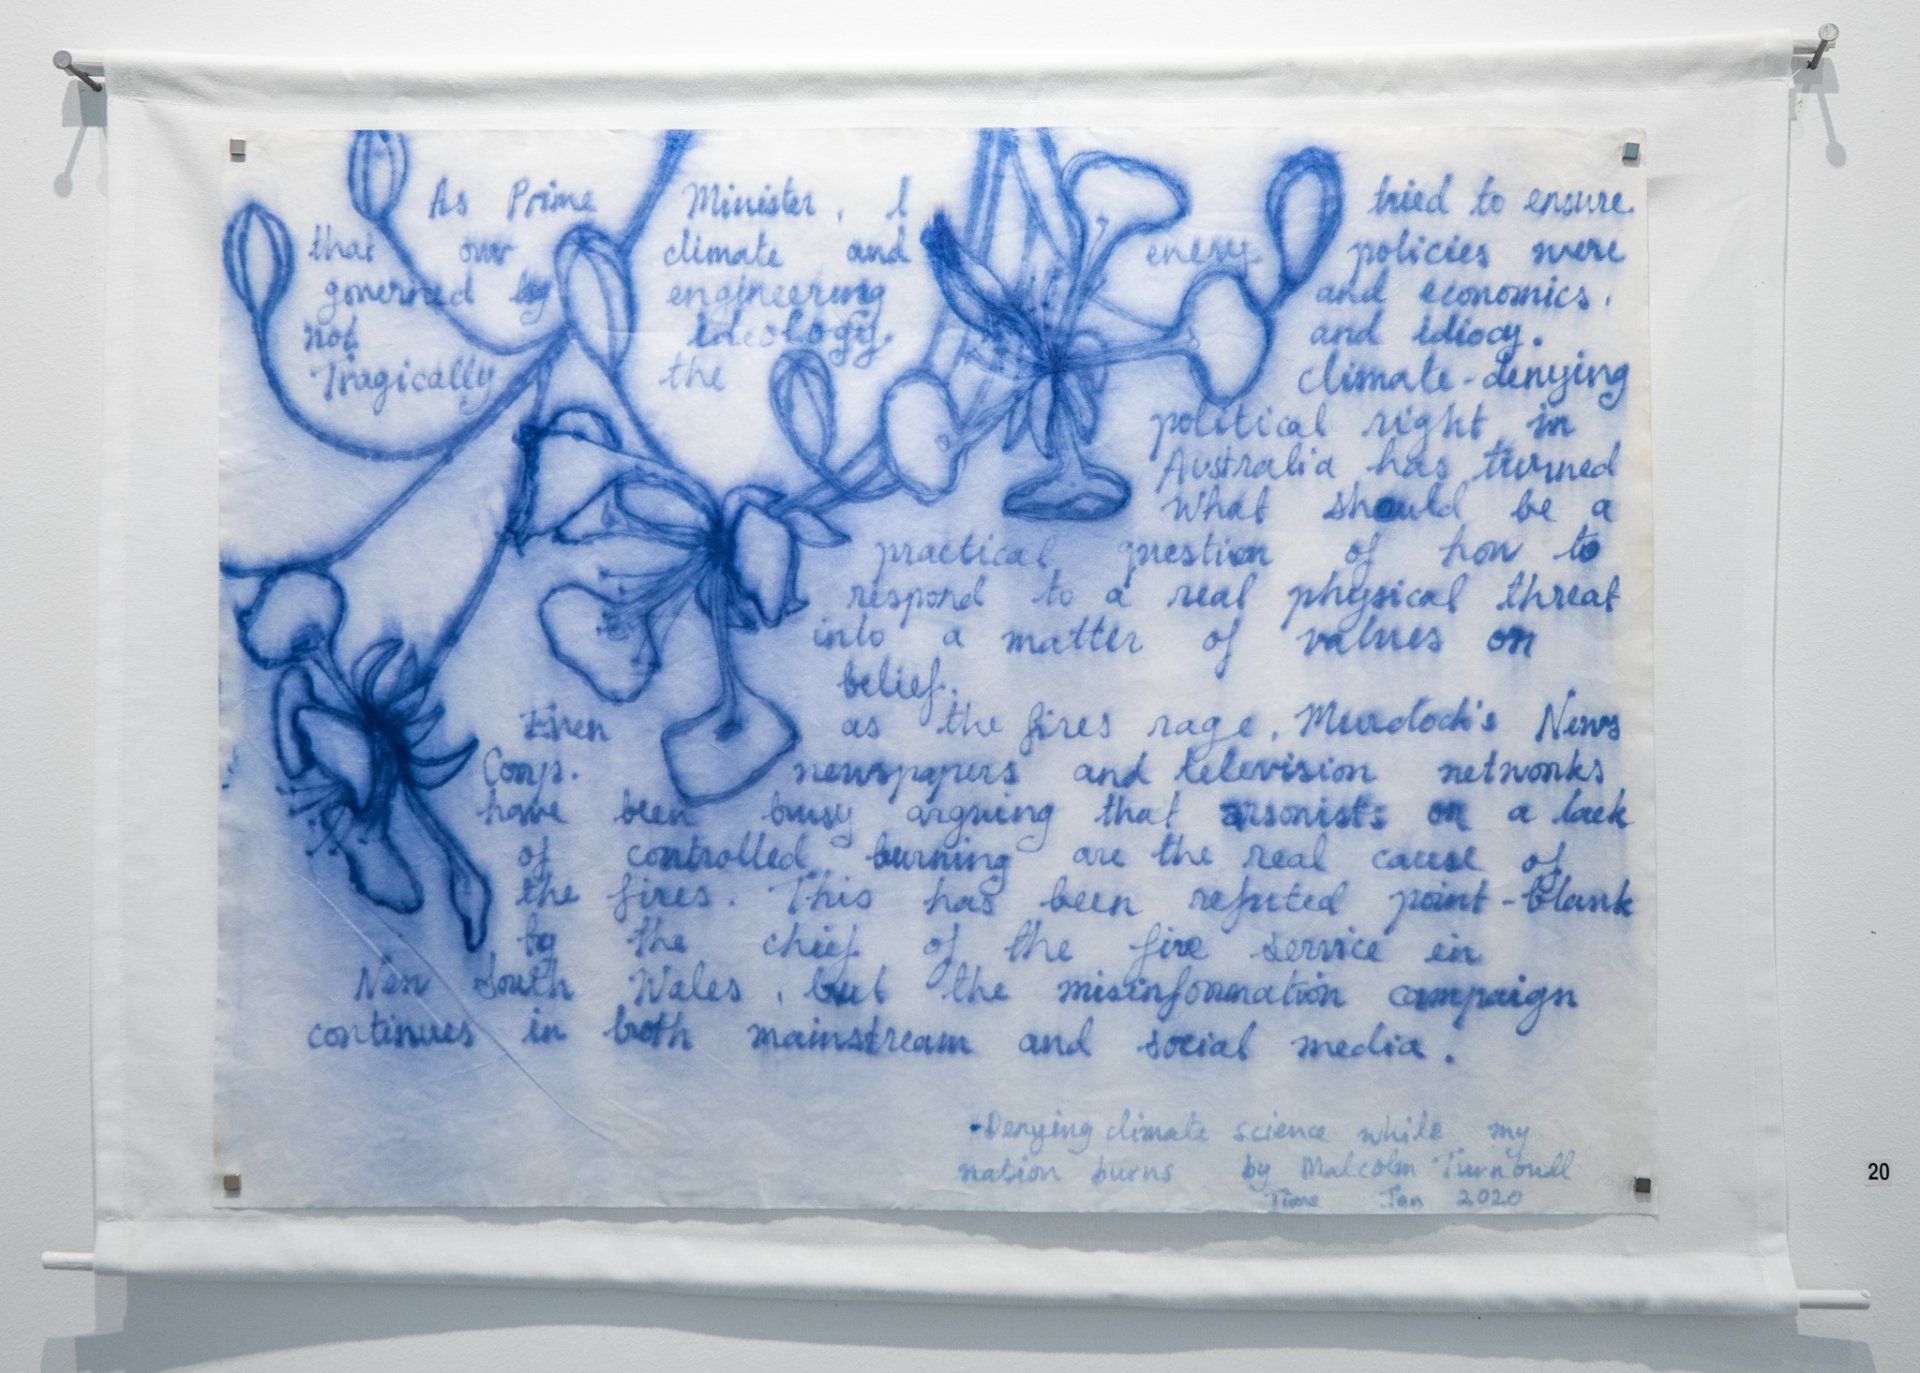 As Prime Minister, I tried to ensure
that our climate and energy policies were
governed by engineering and economics,
not Ideology and idiocy.
Tragically the climate-denying
political right in
Australia has turned
what should be a
practical question of how to
respond to a real physical threat
into a matter of values or
belief.
Even as the fires rage, Murdoch's News
Corp. newspapers and television networks
have been busy arguing that arsonists or a lack
of controlled burning are the real cause of
the fires. This has been refuted point-blank
by the chief of the fire service in
New South Wales, but the misinformation campaign
continues in both mainstream and social media.
-Denying climate science while my
nation burns by Malcolm Turnbull
Time Jan 2020
20